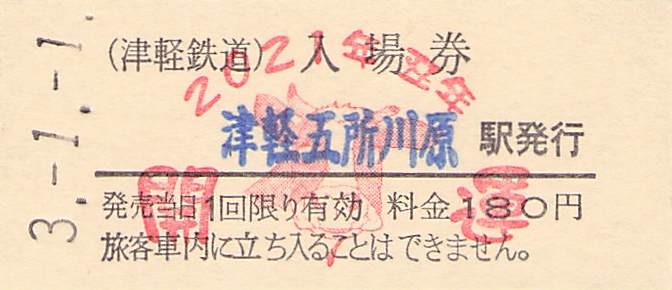 3.-1.-1.
(津軽鉄道) 入場券
2021年 丑年
津軽五所川原 駅発行
開 運
発売当日1回限り有効 料金180円
旅客車内に立ち入ることはできません。